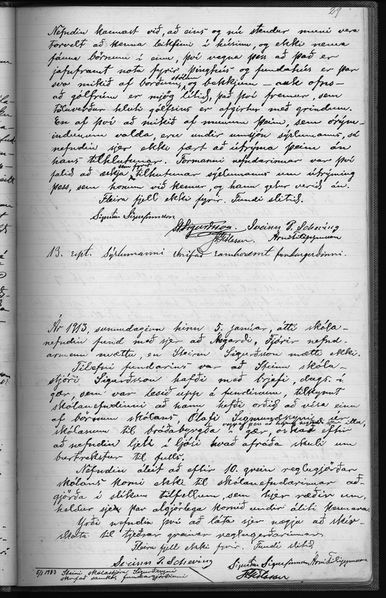 29
Nefndin kannast við, að eins og nú stendur muni vera
torvelt að kenna leikfimi í húsinu, og ekki nema
fáum börnum í einu, því vegna þess að það er
jafnframt notað fyrir þinghús og fundahús er þar
svo mikið af borðum, stólum og bekkjum — ofns
— að gólfrúm er þar lítið, þá því fremur, sem
hluti gólfsins er afgirtur með grindum.
En af því að mikið af munum þeim, sem óþægindunum
valda, eru undir umsjón sýslumanns, sér
nefndin sér ekki fært að útrýma þeim án
hans tilhlutunar. Formanni nefndarinnar var því
falið að sækja til sýslumanns um útrýming
þess, sem honum við kemur, og hann getur verið án.
Fleira fjell ekki fyrir. Fundi slitið.
Sigurður Sigurfinnsson
Sveinn P. Scheving
Árni Filippusson
13. sept. Sýslumanni skrifað samkvæmt fundargjörðinni.
Ár 1913, sunnudaginn hinn 5. janúar, átti skólanefndin
fund með sjer að Ásgarði. Fjórir nefndarmenn
mættu, en Steinn Sigurðsson mætti ekki.
Tilefni fundarins var að Steinn skólastjóri
Sigurðsson hafði með brjefi, dags. í
gær, sem var lesið upp á fundinum, tilkynnt
skólanefndinni að hann hafi orðið að vísa einu
af börnum skólans, Ólafi
skólanum til bráðabyrgða og óskað eftir
að nefndin ljeti í ljósi hvað afráða skuli um
burtrekstur til fulls.
Nefndin áleit að eftir 10. grein reglugjörðar
skólans komi ekki til skólanefndarinnar að
gjörða í slíkum tilfellum, sem hjer ræðir um,
heldur sje það algjörlega komið undir áliti kennara.
Varð nefndin því að láta sjer nægja að skírskota
til tjeðrar greinar reglugerðarinnar.
Fleira fjell ekki fyrir. Fundi slitið.
Sveinn P. Scheving
Sigurður Sigurfinnsson
Árni Filippusson
5/1 1913 Steini skólastjóra Sigurðssyni
skrifað samkv. fundargjörðinni